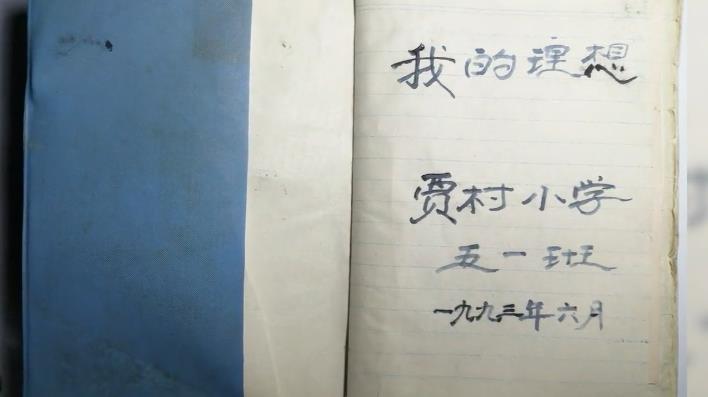 我的理想
贾村小学
五一班
一九九三年六月